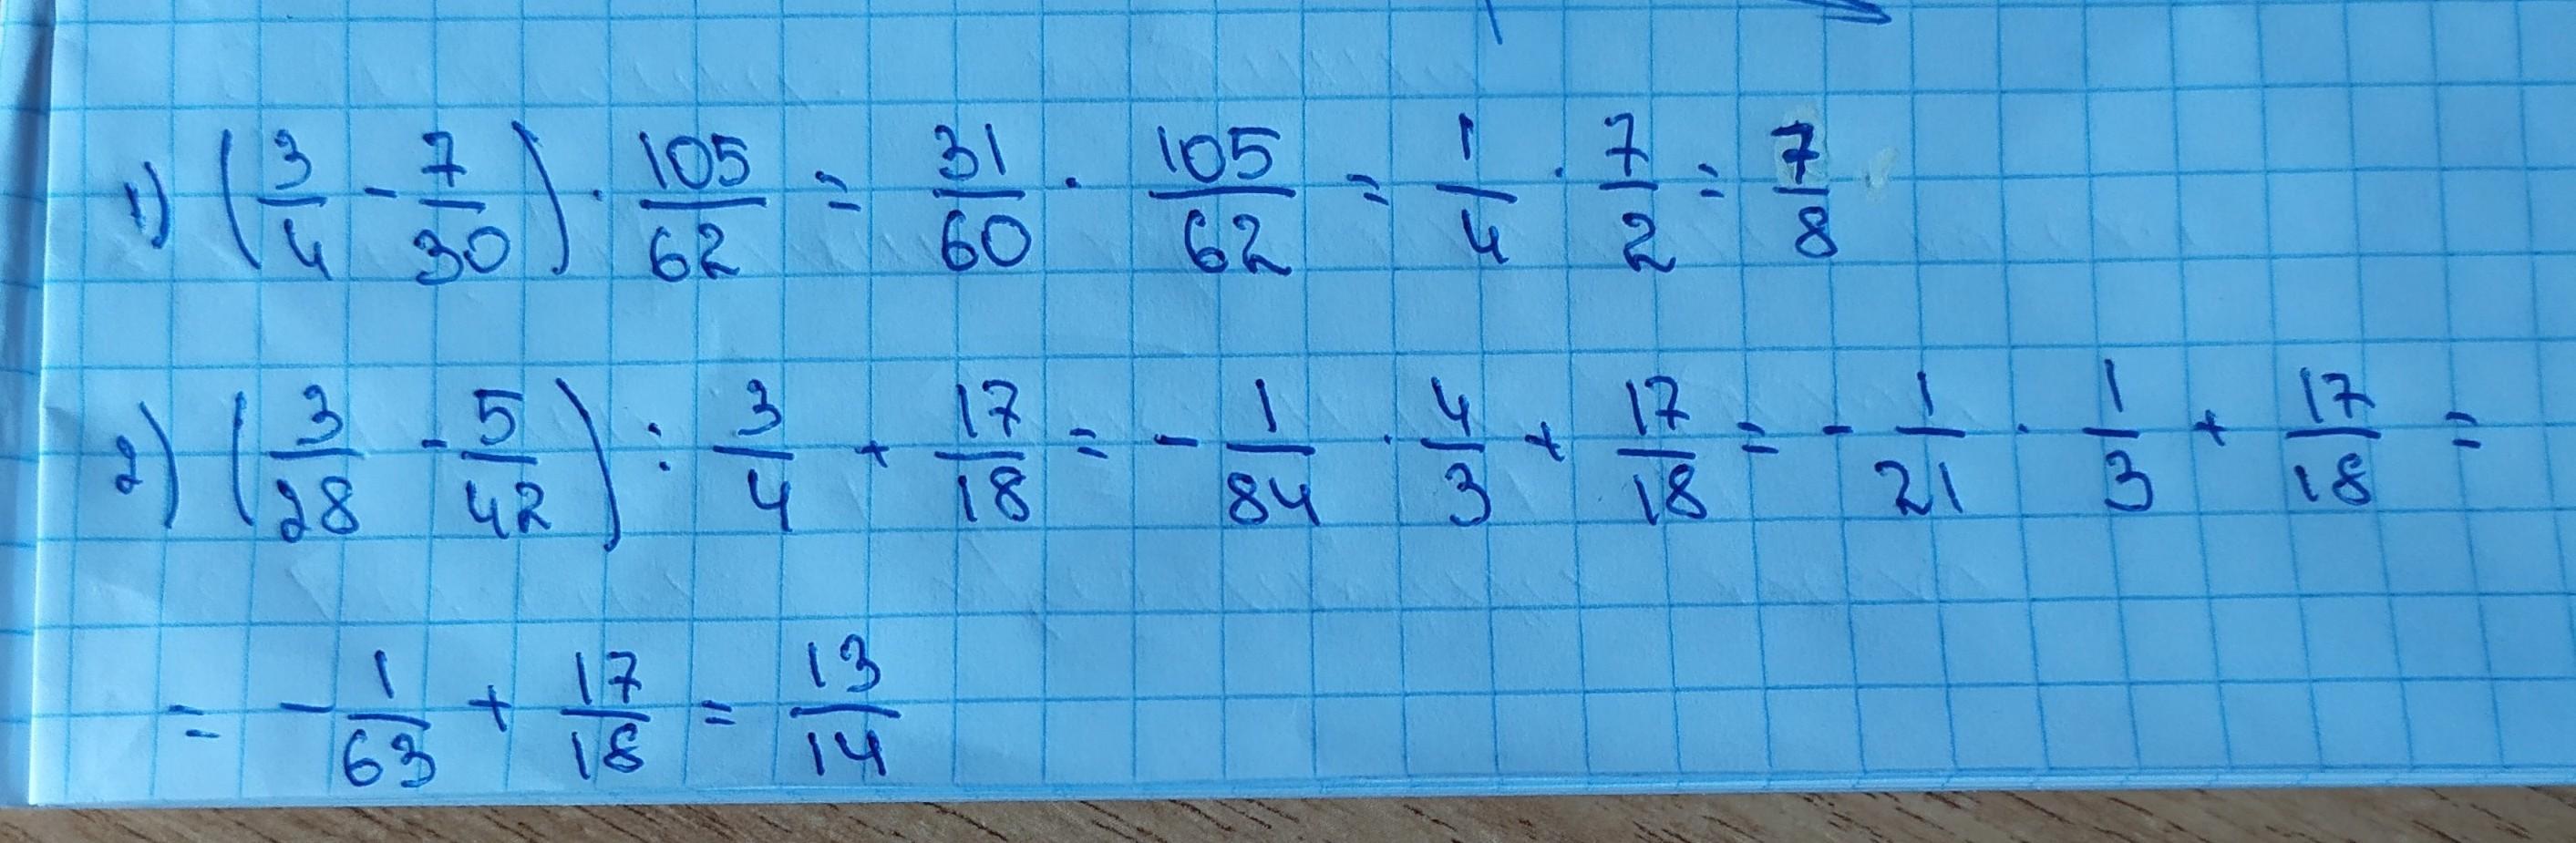 1) (3/4 - 7/30) · 105/62 = 31/60 · 105/62 = 1/4 · 7/2 = 7/8
2) (3/28 - 5/42) : 3/4 + 17/18 = - 1/84 · 4/3 + 17/18 = - 1/21 · 1/3 + 17/18 =
= - 1/63 + 17/18 = 13/14